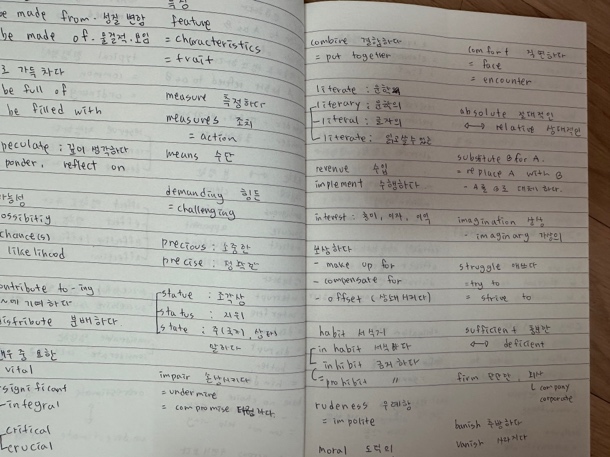 be made from. 성질 변함
be made of. 물질적.
로 가득 차다
be full of
be filled with
speculate : 깊이 생각하다
ponder, reflect on
가능성
possibiity
chance(s)
likelihood
contribute to -ing
~에 기여하다
distribute 분배하다
매우 중요한
vital
significant
integral
critical
crucial
feature
= characteristics
= trait
measure 측정하다
measures 조치
= action
means 수단
demanding 힘든
= challenging
precious : 소중한
precise : 정확한
statue : 조각상
status : 지위
state : 주(국가), 상태
말하다
impair 손상시키다
= undermine
= compromise
combine 결합하다
= put together
literate : 문학
literary : 문학의
literal : 글자의
literate : 읽고쓸수있는
revenue 수입
implement 수행하다
interest : 흥미, 이자, 이익
보상하다
- make up for
- compensate for
- offset (상쇄시키다)
habit 서식지
inhabit 서식하다
inhibit 금지하다
= prohibit "
rudeness 무례함
= impolite
moral 도덕의
comfort 직면하다
= face
= encounter
absolute 절대적인
↔ relative 상대적인
substitute B for A.
= replace A with B
- A를 B로 대체하다.
imagination 상상
- imaginary 가상의
struggle 애쓰다
= try to
= strive to
sufficient 충분한
↔ deficient
firm 단단한 회사
company
corporate
banish 추방하다
vanish 사라지다